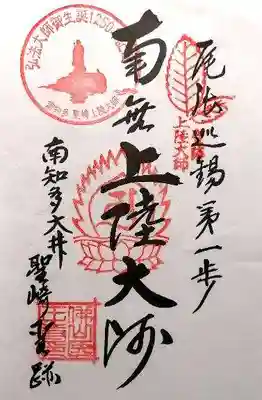 尾張巡錫第一歩
南無上陸大師
南知多大井
聖崎霊跡
弘法大師御生誕1250年
聖崎上陸大師
上陸大師